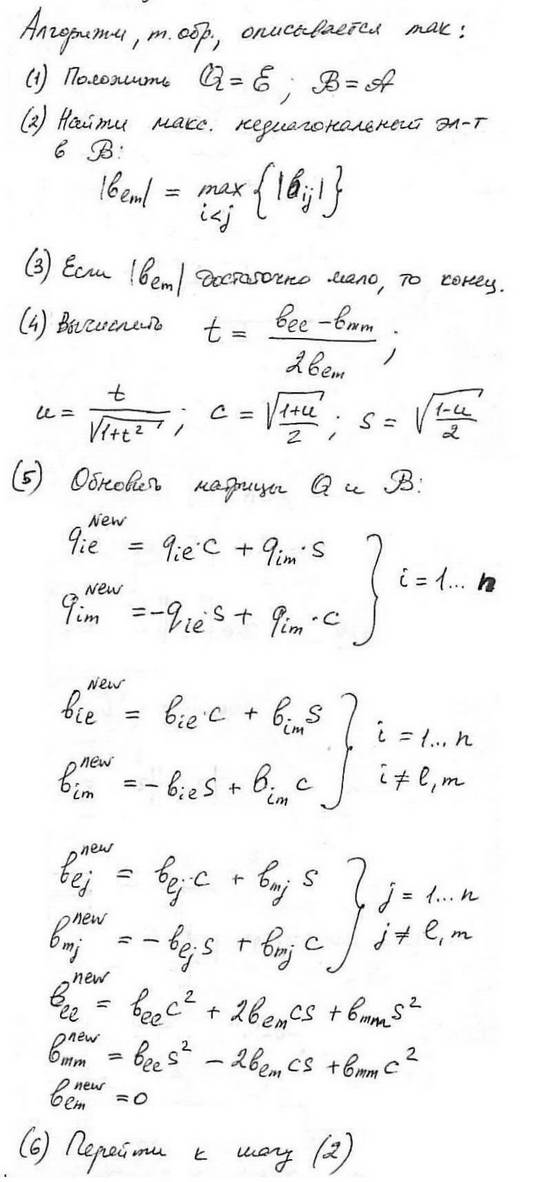 Алгоритм, т. обр., описывается так:
(1) Положить Q = E ; B = A
(2) Найти макс. недиагональный эл-т
в B:
|bₑₘ| = max_{i<j} { |b_{ij}| }
(3) Если |b_{em}| достаточно мало, то конец.
(4) Вычислить t = (b_{ee} - b_{mm}) / (2b_{em}) ;
u = t / √(1+t²) ; c = √((1+u)/2) ; s = √((1-u)/2)
(5) Обновить матрицы Q и B:
q_{ie}^{new} = q_{ie}·c + q_{im}·s
q_{im}^{new} = -q_{ie}·s + q_{im}·c } i = 1... n
b_{ie}^{new} = b_{ie}·c + b_{im} s
b_{im}^{new} = -b_{ie} s + b_{im} c } i = 1... n i ≠ l, m
b_{ej}^{new} = b_{ej}·c + b_{mj} s
b_{mj}^{new} = -b_{ej} s + b_{mj} c } j = 1... n j ≠ l, m
b_{ee}^{new} = b_{ee} c² + 2b_{em} cs + b_{mm} s²
b_{mm}^{new} = b_{ee} s² - 2b_{em} cs + b_{mm} c²
b_{em}^{new} = 0
(6) Перейти к шагу (2)